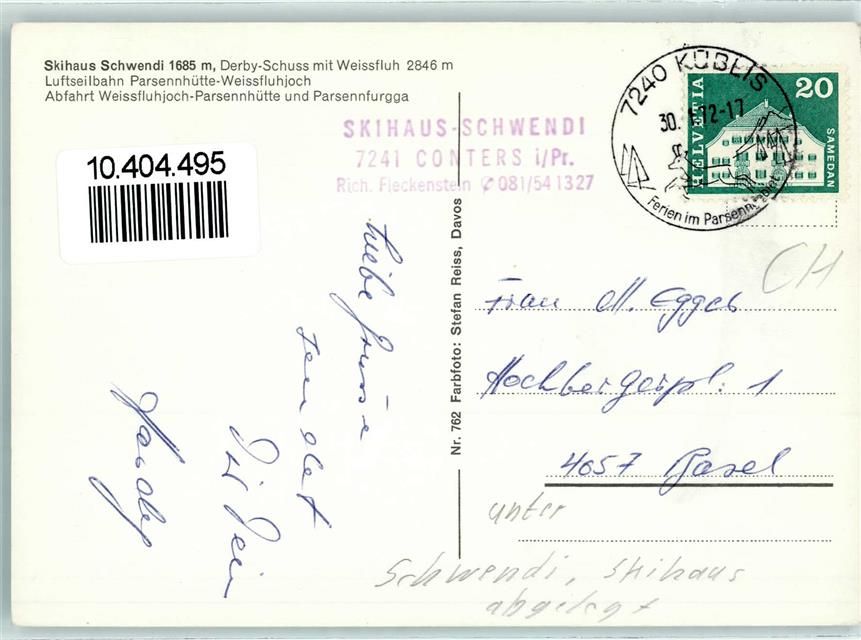 Skihaus Schwendi 1685 m, Derby-Schuss mit Weissfluh 2846 m
Luftseilbahn Parsennhütte-Weissfluhjoch
Abfahrt Weissfluhjoch-Parsennhütte und Parsennfurgga
10.404.495
SKIHAUS-SCHWENDI
7241 CONTERS i/Pr.
Rich. Fleckenstein ✆ 081/541327
7240 KÜBLIS
72-17
Ferien im Parsenngebiet
HELVETIA
20
SAMEDAN
CH
Liebe Grüsse
sendet
Dir Dein
Nr. 762 Farbfoto: Stefan Reiss, Davos
Frau M. Egger
Hochbergerpl. 1
4057 Basel
unter
Schwendi, Skihaus
abgelegt